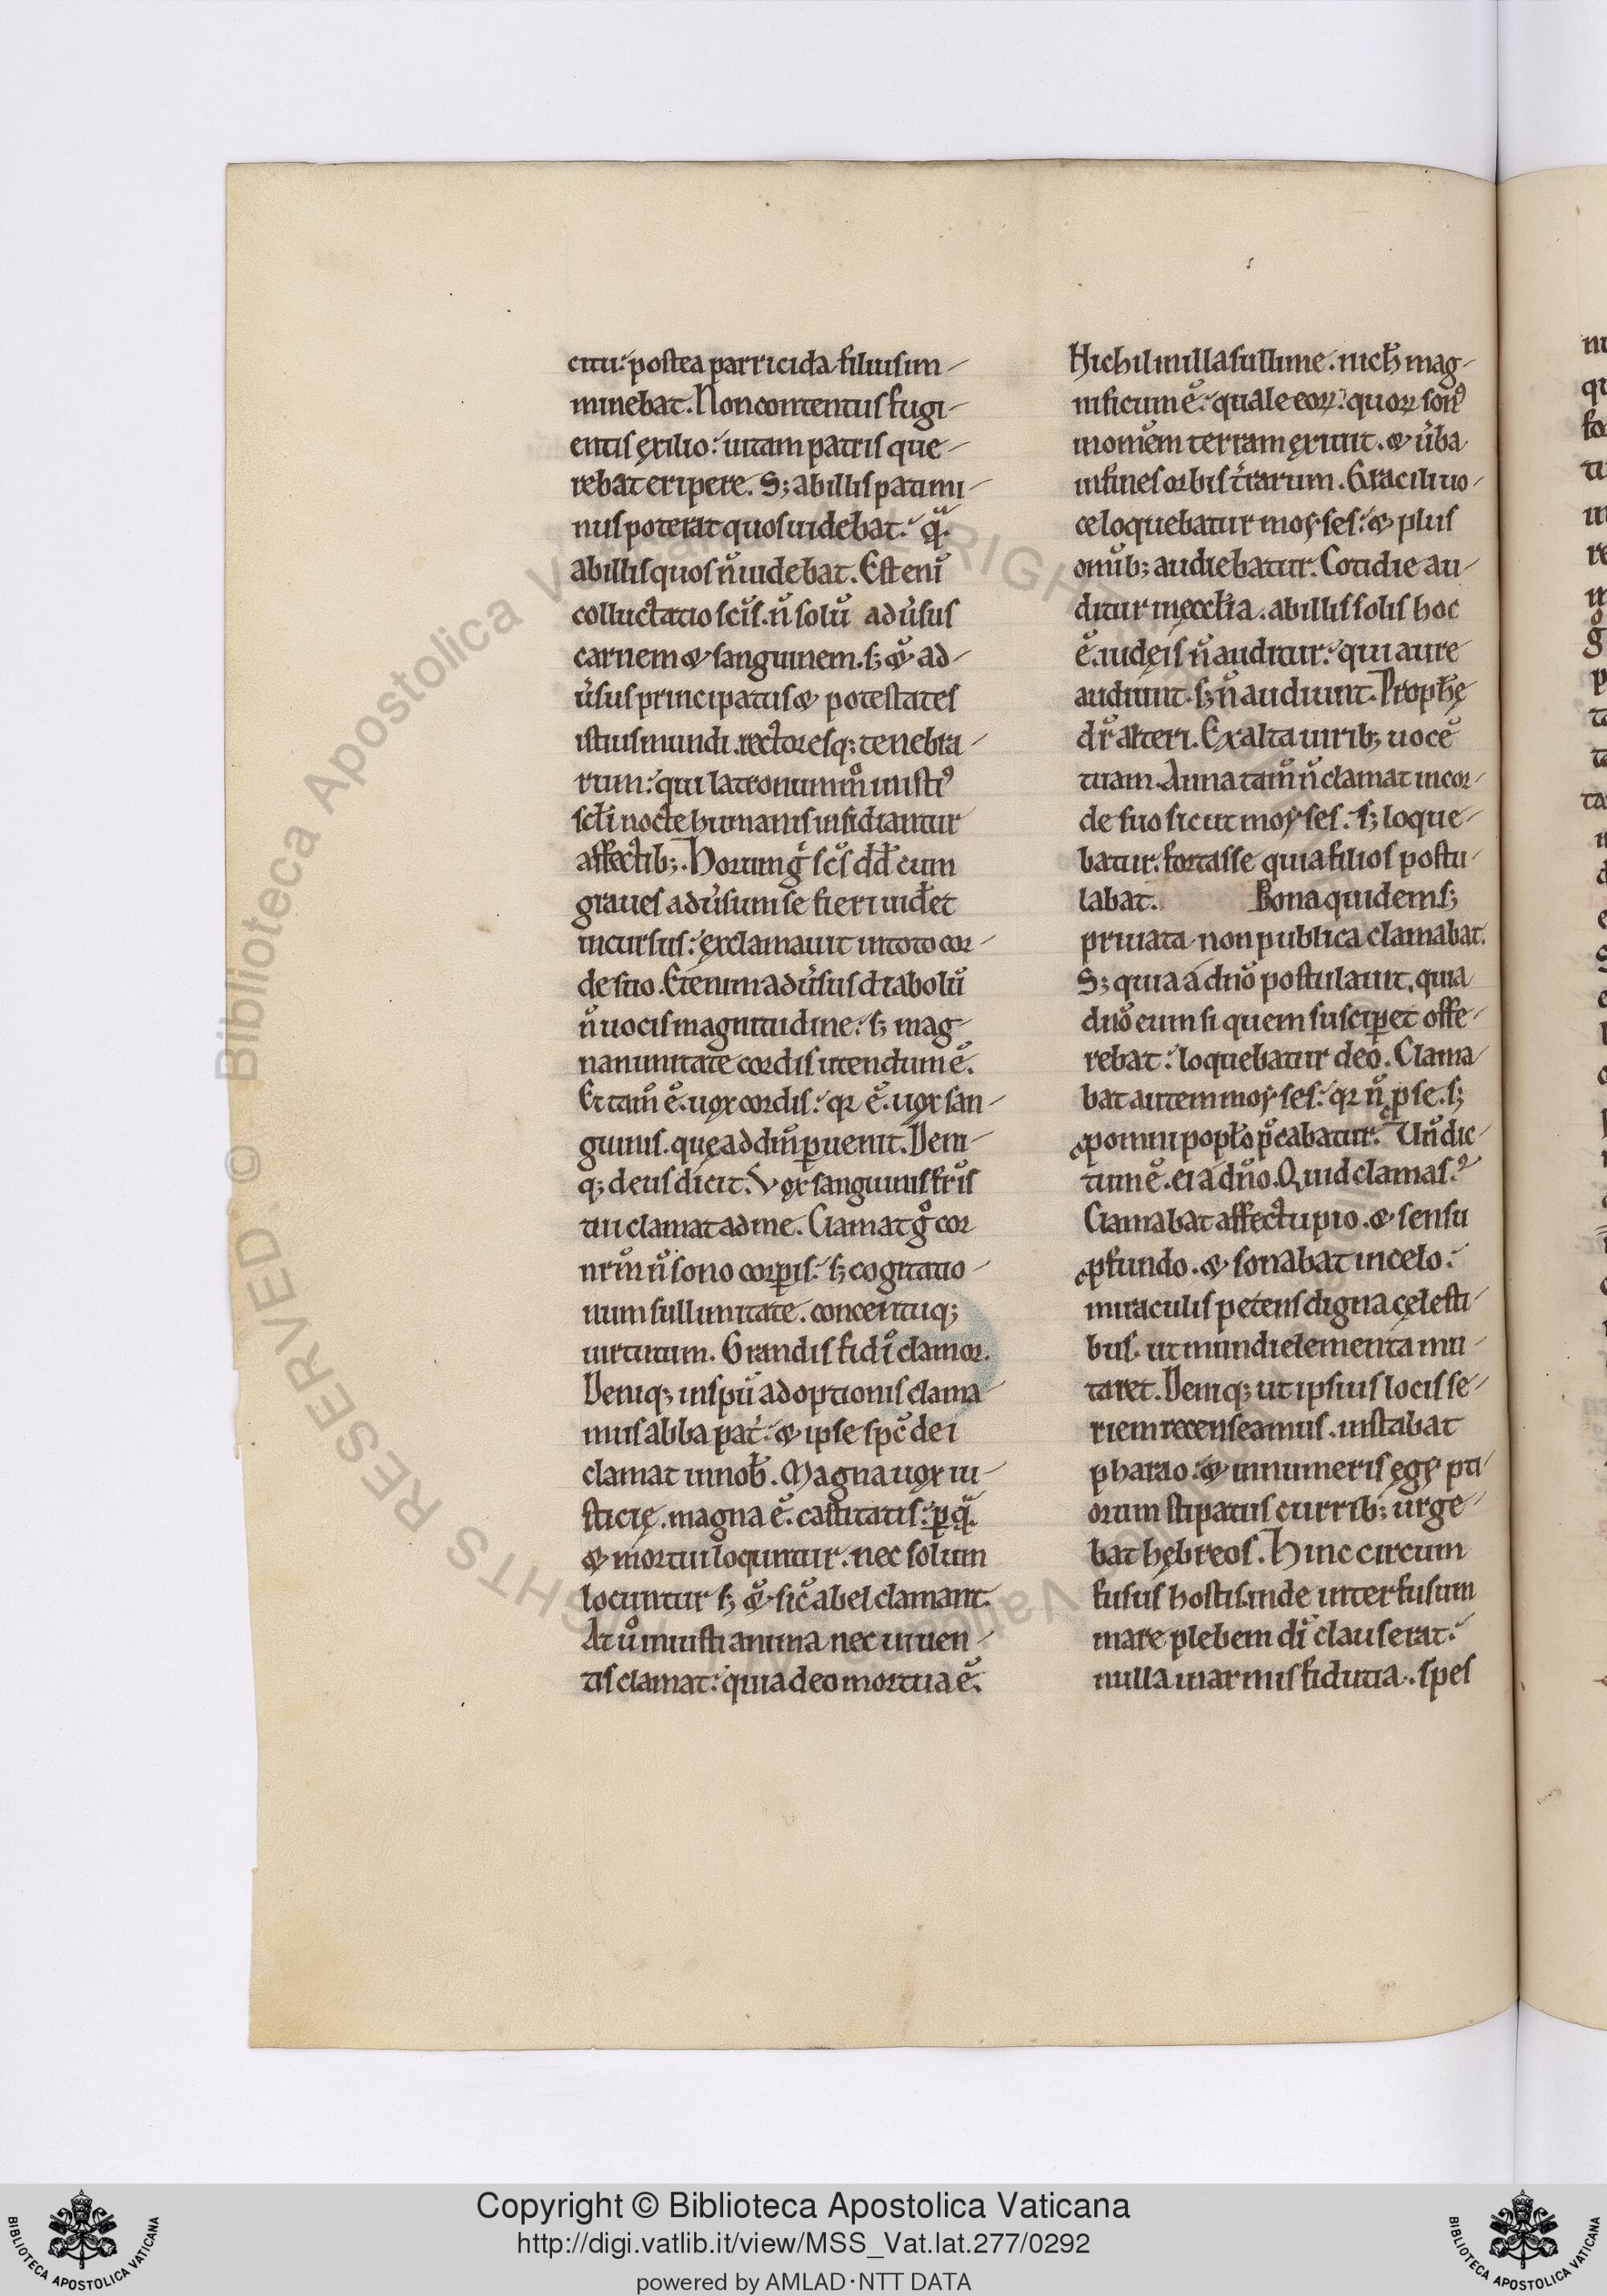 citu: postea parricida filius im-
minebat. Non contentus fugi-
entis ęxilio: uitam patris que-
rebat eripere. S; ab illis pati mi-
nus poterat quos uidebat: qͣ
ab illis quos n̄ uidebat. Est eni̅
colluctatio sc̄is. n̄ solū adu̓sus
carnem & sanguinem. s; & ad-
u̓sus principatus & potestates
istius mundi. rectoresq; tenebra-
rum: qui latronum m̊ iniustiꝰ
scl̄i nocte humanis insidiantur
affectib;. Horum gͥ sc̄s dd̄ cum
graues adu̓sum se fieri uidet̄
incursus: ęxclamauit in toto cor-
de suo. Etenim adu̓sus diabolū
n̄ uocis magnitudine: s; mag-
nanimitate cordis utendum ē.
Et tam̄ ē. uox cordis: qꝛ ē. uox san-
guinis. quę ad dm̄ ꝑuenit. Deni-
q; deus dicit. Vox sanguinis fr̄is
tui clamat ad me. Clamat gͦ cor
nr̄m n̄ sono corꝑis: s; cogitatio-
num sullimitate. concentuq;
uirtutum. Grandis fidͥ clamor.
Deniq; in spū adoptionis clama-
mus abba pat̓: & ipse spc̄ dei
clamat in nob̄. Magna uox iu-
sticię. magna ē. castitatis: ꝑ qͣ
& mortui loquntur. nec solum
locuntur s; & sic̄ abel clamant.
At uͦ iniusti anima nec uiuen-
tis clamat: quia deo mortua ē.
Hichil in illa sullime. nich̄ mag-
nificum ē: quale eoꝝ: quoꝝ sonꝰ
in omēm terram ęxiuit. & u̓ba
in fines orbis t̓rarum. Gracili uo-
ce loquebatur moyses: & plus
omīb; audiebatur. Cotidie au-
ditur in ęccl̄ia. ab illis solis hoc
ē. iudęis n̄ auditur: qui aure
audiunt. s; n̄ audiunt. Proph̄ę
dr̄ alteri. Exalta uirib; uocē
tuam. Anna tam̄ n̄ clamat in cor-
de suo sicut moyses. s; loque-
batur. fortasse quia filios postu-
labat. Bona quidem s;
priuata non publica clamabat.
S; quia a dn̄o postulauit. quia
dn̄o eum si quem susciꝑet offe-
rebat: loquebatur deo. Clama-
bat autem moyses: qꝛ n̄ ꝑ se. s;
ꝓ omni popl̄o p̄cabatur. Un̄ dic-
tum ē. ei a dn̄o. Quid clamas?
Clamabat affectu pio. & sensu
ꝓfundo. & sonabat in celo:
miraculis petens digna cęlesti-
bus. ut mundi elementa mu-
taret. Deniq; ut ipsius locis se-
riem recenseamus. instabat
pharao: & innumeris ęgypti-
orum stipatus currib; urge-
bat hębreos. Hinc circum
fusus hostis. inde interfusum
mare plebem dī clauserat:
nulla in armis fidutia. spes